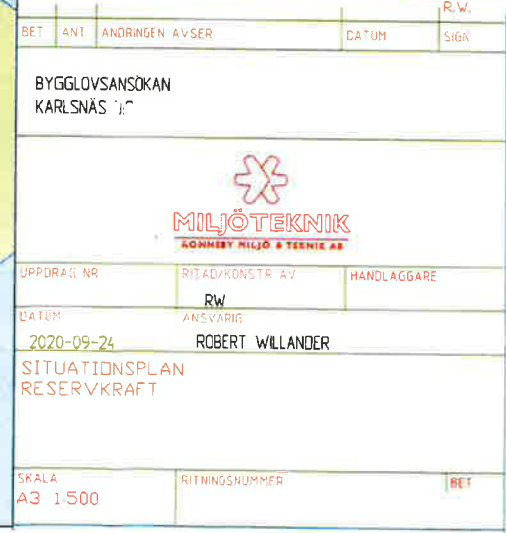 R.W.
BET ANT ÄNDRINGEN AVSER DATUM SIGN
BYGGLOVSANSÖKAN
KARLSNÄS
MILJÖTEKNIK
RONNEBY MILJÖ & TEKNIK AB
UPPDRAG NR RITAD/KONSTR AV HANDLÄGGARE
RW
DATUM ANSVARIG
2020-09-24 ROBERT WILLANDER
SITUATIONSPLAN
RESERVKRAFT
SKALA RITNINGSNUMMER BET
A3 1:500